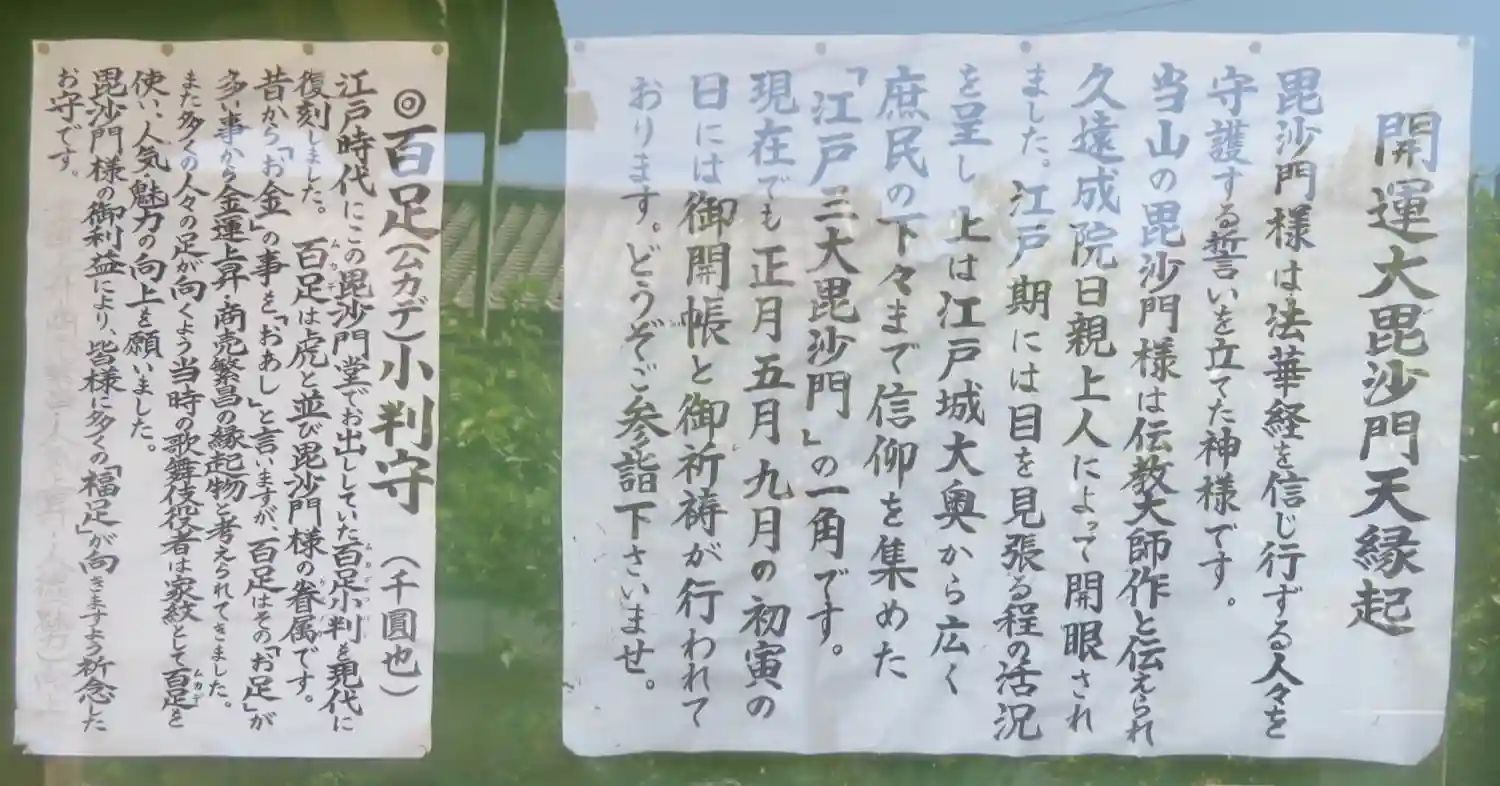 開運大毘沙門天縁起
毘沙門様は法華経を信じ行ずる人々を
守護する誓いを立てた神様です。
当山の毘沙門様は伝教大師作と伝えられ
久遠成院日親上人によって開眼され
ました。江戸期には目を見張る程の活況
を呈し 上は江戸城大奥から広く
庶民の下々まで信仰を集めた
「江戸三大毘沙門」の一角です。
現在でも正月五月九月の初寅の
日には御開帳と御祈祷が行われて
おります。どうぞご参詣下さいませ。
◎百足(ムカデ)小判守 (千圓也)
江戸時代にこの毘沙門堂でお出ししていた百足小判を現代に
復刻しました。 百足は虎と並び毘沙門様の眷属です。
昔から「お金」の事を「おあし」と言いますが、百足はその「お足」が
多い事から金運上昇・商売繁昌の縁起物と考えられてきました。
また多くの人々の足が向くよう当時の歌舞伎役者は家紋として百足を
使い、人気・魅力の向上を願いました。
毘沙門様の御利益により、皆様に多くの「福足」が向きますよう祈念した
お守です。